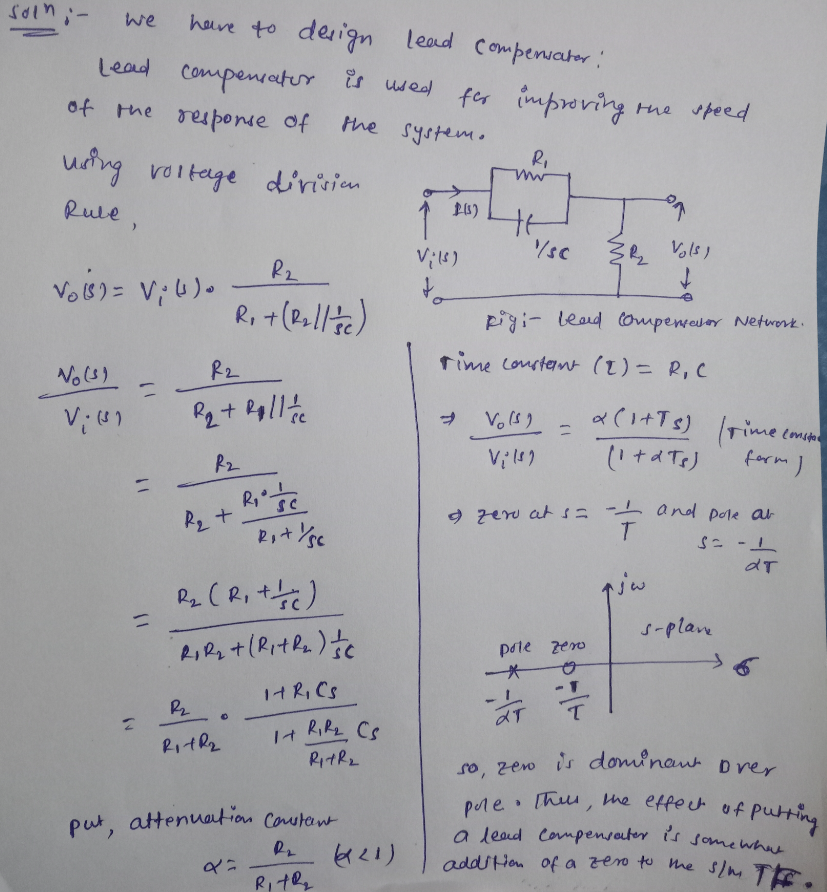 Soln :- we have to design lead compensator:
Lead compensator is used for improving the speed
of the response of the system.
using voltage division
Rule,
R1
I(s)
1/sC
Vi(s)
R2
Vo(s)
Fig:- lead compensator Network.
Vo(s) = Vi(s) . R2 / (R1 + (R2 || 1/sC))
Vo(s) / Vi(s) = R2 / (R2 + R1 || 1/sC)
= R2 / (R2 + (R1 . 1/sC) / (R1 + 1/sC))
= R2 (R1 + 1/sC) / (R1R2 + (R1+R2) 1/sC)
= R2 / (R1+R2) . (1+R1Cs) / (1 + R1R2/(R1+R2) Cs)
put, attenuation constant
α = R2 / (R1+R2) (α<1)
Time constant (τ) = R1C
⇒ Vo(s) / Vi(s) = α(1+Ts) / (1+αTs) (Time consta
form)
⇒ zero at s = -1/T and pole at
s = -1/αT
jω
s-plane
pole zero
σ
-1/αT -1/T
so, zero is dominant over
pole. Thus, the effect of putting
a lead compensator is somewhat
addition of a zero to the s/m TF.